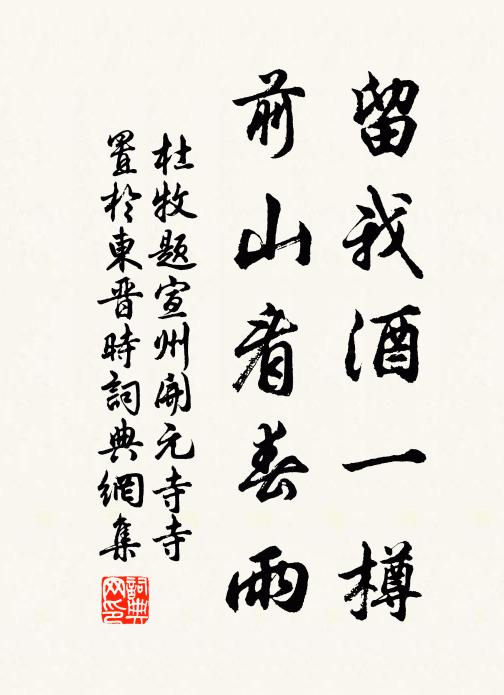 留我酒一樽
前山看春雨
杜牧題宣州開元寺寺
置於東晉時詞典網集
詞典
网印